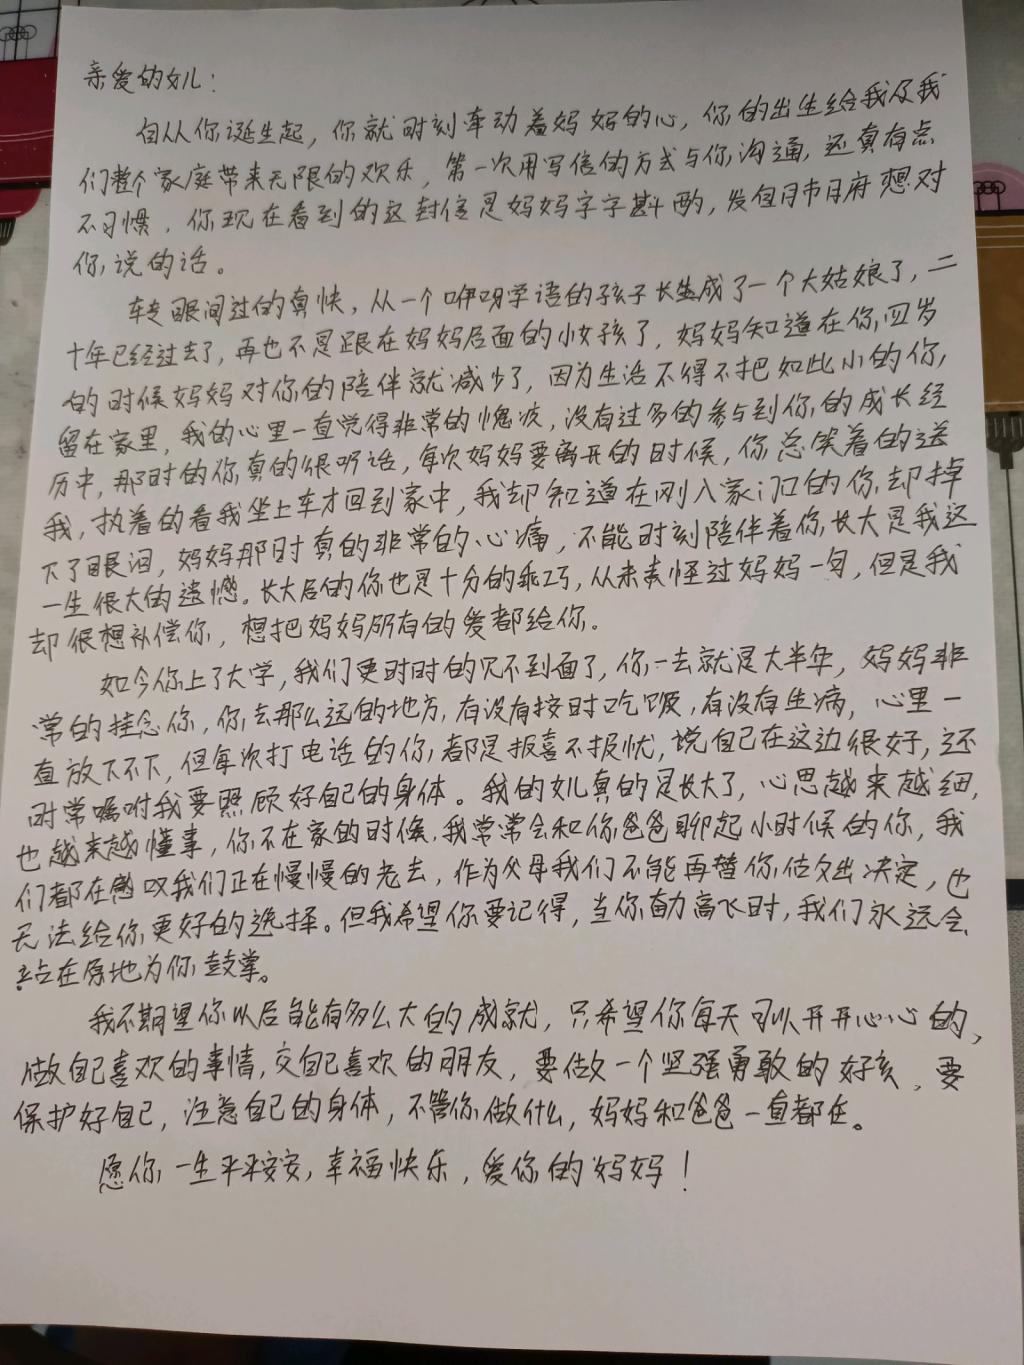 亲爱的女儿：
自从你诞生起，你就时刻牵动着妈妈的心，你的出生给我及我
们整个家庭带来无限的欢乐，第一次用写信的方式与你沟通，还真有点
不习惯，你现在看到的这封信是妈妈字字斟酌，发自肺腑想对
你说的话。
转眼间过的真快，从一个咿呀学语的孩子长成了一个大姑娘了，二
十年已经过去了，再也不是跟在妈妈后面的小女孩了，妈妈知道在你四岁
的时候妈妈对你的陪伴就减少了，因为生活不得不把如此小的你，
留在家里，我的心里一直觉得非常的愧疚，没有过多的参与到你的成长经
历中，那时的你真的很听话，每次妈妈要离开的时候，你总笑着的送
我，执着的看我坐上车才回到家中，我却知道在刚入家门口的你却掉
下了眼泪，妈妈那时真的非常的心痛，不能时刻陪伴着你长大是我这
一生很大的遗憾。长大后的你也是十分的乖巧，从来未怪过妈妈一句，但是我
却很想补偿你，想把妈妈所有的爱都给你。
如今你上了大学，我们更时时的见不到面了，你一去就是大半年，妈妈非
常的挂念你，你去那么远的地方，有没有按时吃饭，有没有生病，心里一
直放下不下，但每次打电话的你都是报喜不报忧，说自己在这边很好，还
时常嘱咐我要照顾好自己的身体。我的女儿真的是长大了，心思越来越细，
也越来越懂事，你不在家的时候，我常常会和你爸爸聊起小时候的你，我
们都在感叹我们正在慢慢的老去，作为父母我们不能再替你做出决定，也
无法给你更好的选择。但我希望你要记得，当你奋力高飞时，我们永远会
站在原地为你鼓掌。
我不期望你以后能有多么大的成就，只希望你每天可以开开心心的，
做自己喜欢的事情，交自己喜欢的朋友，要做一个坚强勇敢的好孩，要
保护好自己，注意自己的身体，不管你做什么，妈妈和爸爸一直都在。
愿你一生平平安安，幸福快乐，爱你的妈妈！